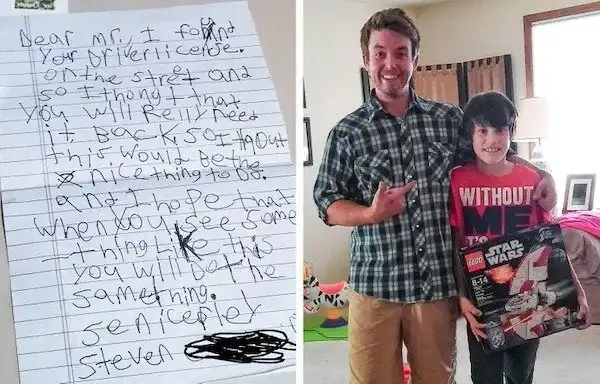 Dear mr. I found
your Driver license.
on the stret and
so I thongt that
you will Relly need
it BACK so I thout
this would be the
nice thing to do.
and I hope that
when you see some
thing like this
you will do the
same thing.
seniceřley
Steven
WITHOUT
ME
IT'S
LEGO STAR
WARS
8-14